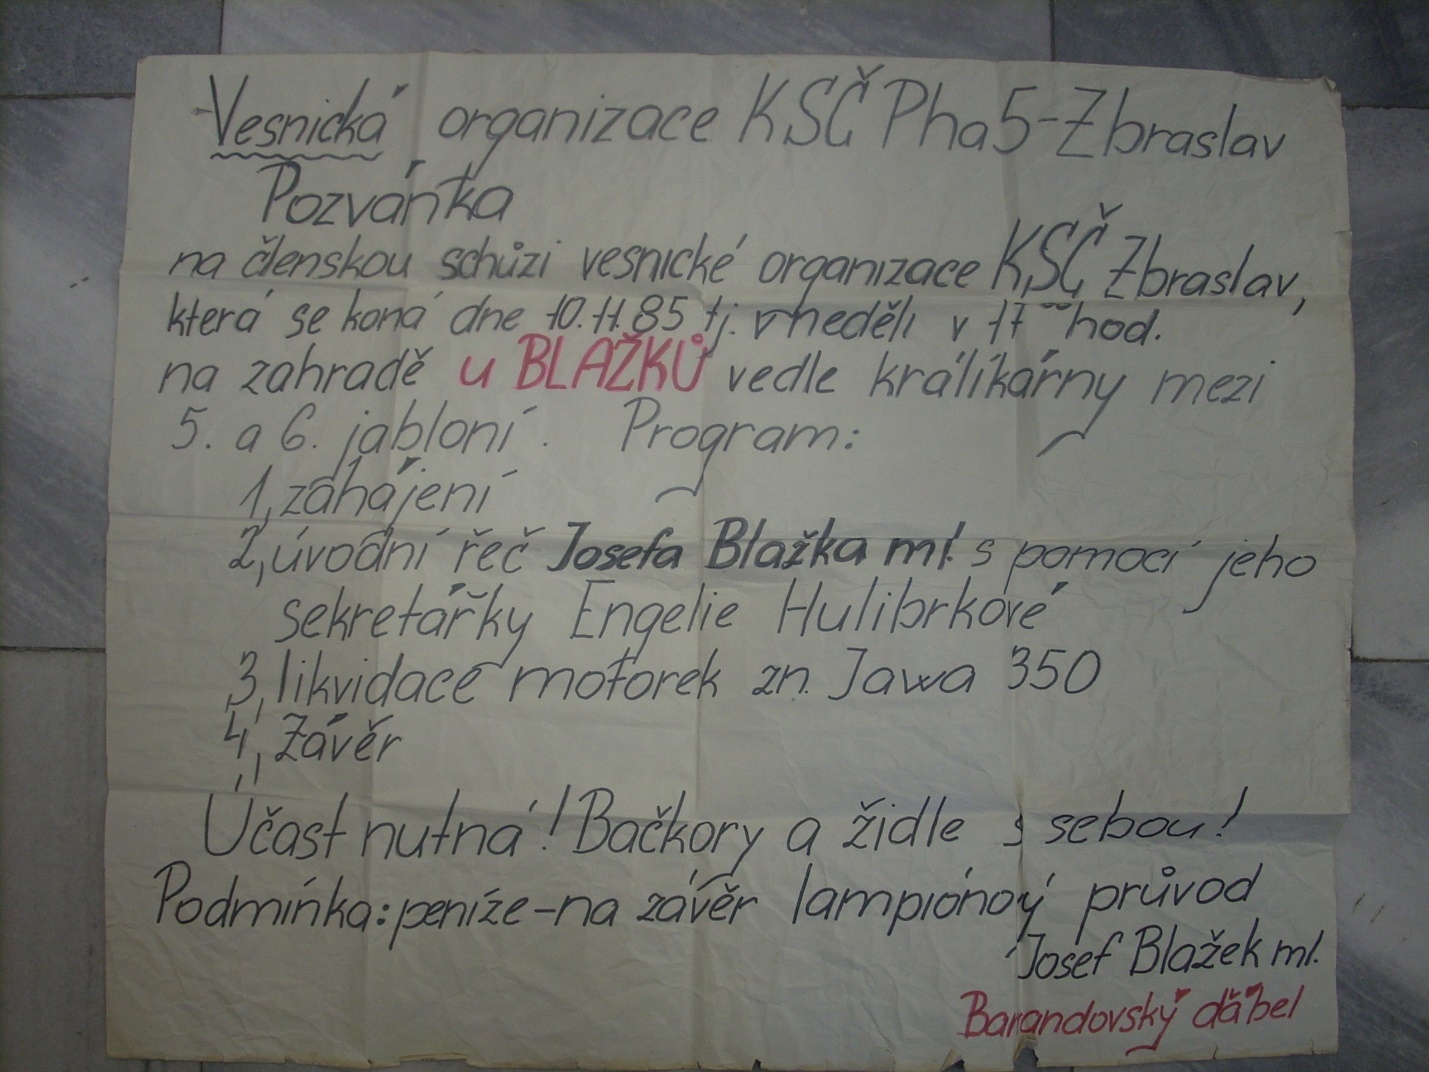 Vesnická organizace KSČ Pha 5-Zbraslav
Pozvánka
na členskou schůzi vesnické organizace KSČ Zbraslav,
která se koná dne 10.11.85 tj. v neděli v 17⁰⁰ hod.
na zahradě u BLAŽKŮ vedle králíkárny mezi
5. a 6. jabloní. Program:
1, zahájení
2, úvodní řeč Josefa Blažka ml. s pomocí jeho
sekretářky Engelie Hulibrkové
3, likvidace motorek zn. Jawa 350
4, Závěr
Účast nutná! Bačkory a židle s sebou!
Podmínka: peníze - na závěr lampiónový průvod
Josef Blažek ml.
Barandovský ďábel